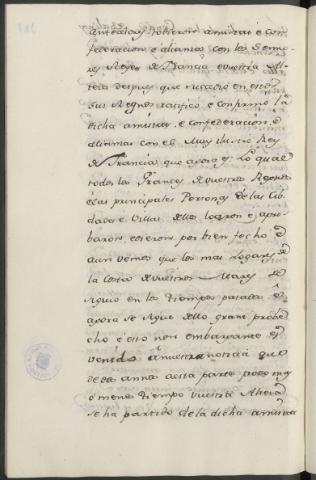 antecesores tobieron amistad è con
federacion è aliansa con los Seño-
res Reyes de Francia è vuestra Al-
tesa despues que suscedió en estos
sus Regnos ratificó è confirmó la
dicha amistad, è confederacion, è
aliansa con el Muy Ilustre Rey
de Francia, que agora es. Lo qual
todos los Grandes de vuestros Regnos
è las principales Personas de las Cib-
dades è Villas dellos loaron è apro-
baron è tobieron por bien fecho è
aun vemos que los mas Logares de
la Costa de vuestros Mares se
siguio en los tiempos pasados è
agora se sigue dello grand probe-
cho è esto non embargante es
venido à nuestra noticia que
de un anno à esta parte poco mas
o menos tiempo vuestra Altesa
se ha partido de la dicha amistad